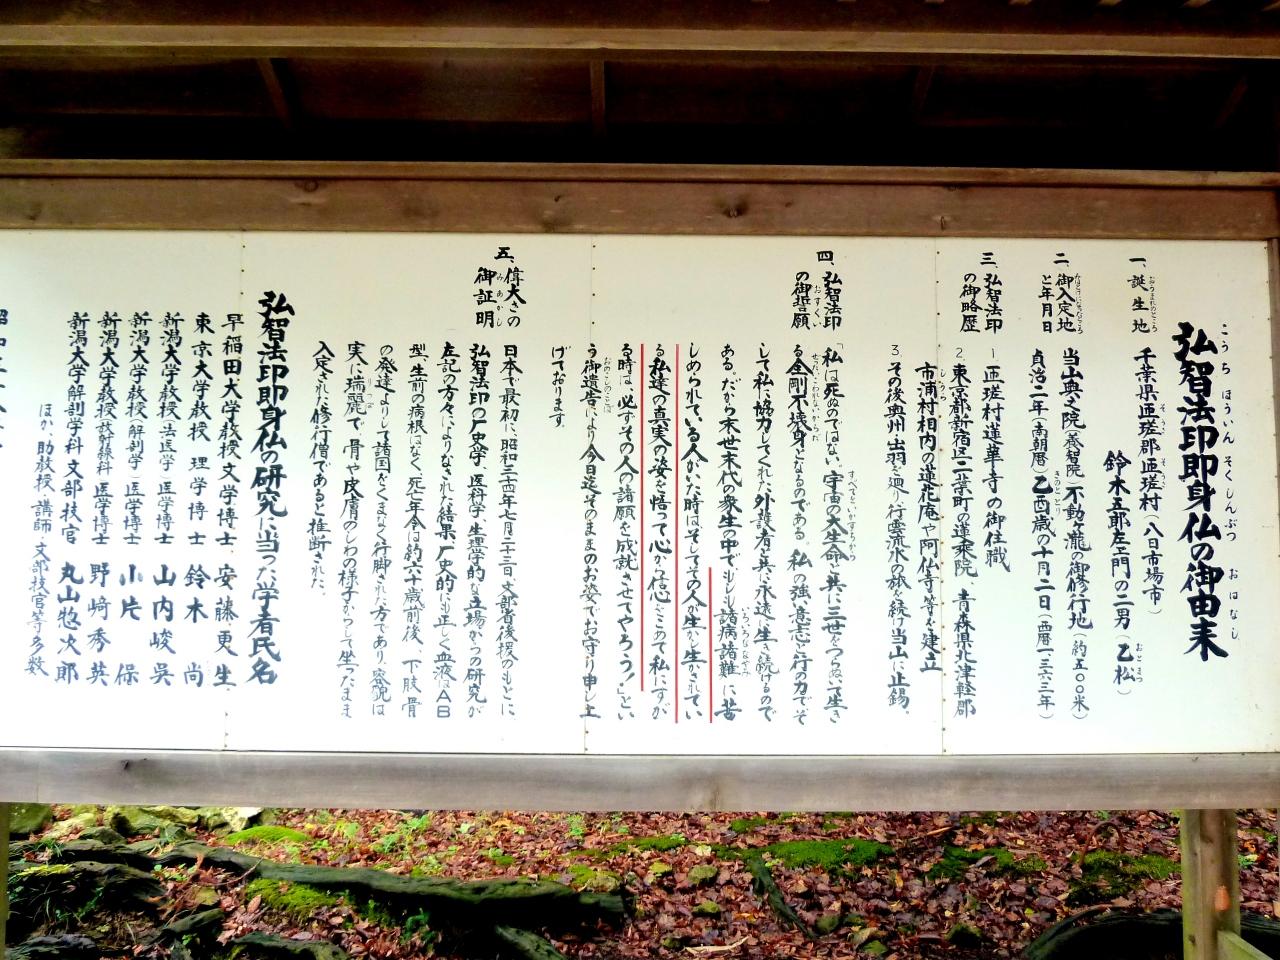 こうち ほういん そくしんぶつ おはなし
弘智法印即身仏の御由来
一、誕生地 千葉県匝瑳郡匝瑳村(八日市場市)
鈴木五郎左エ門の二男(乙松)
二、御入定地 当山奥之院(養智院)不動ヶ滝の御修行地(約五〇〇米)
と年月日 貞治二年(南朝暦)乙酉歳の十月二日(西暦一三六三年)
三、弘智法印 1 匝瑳村蓮華寺の御住職
の御略歴 2 東京都新宿区二葉町の蓮乗院 青森県北津軽郡
市浦村相内の蓮花庵や阿仏寺等を建立
3 その後奥州出羽を廻り行雲流水の旅を続け当山に止錫。
四、弘智法印 「私は死ぬのではない、宇宙の大生命と共に三世をつらぬいて生き
の御誓願 る金剛不壊身となるのである。私の強い意志と行の力でそ
して私に協力してくれた外護者も共に永遠に生き続けるので
ある。だから末世末代の衆生の中でもしも諸病諸難に苦
しめられている人がいた時はそしてその人が生かされてい
る私達の真実の姿を悟って心から信心をこめて私にすが
る時は必ずその人の諸願を成就させてやろう!」とい
う御遺告により今日迄そのままのお姿でお守り申し上
げております。
五、偉大さの 日本で最初に、昭和三四年七月二十三日、文部省後援のもとに
御証明 弘智法印の歴史学、医科学、生理学的な立場からの研究が
左記の方々によりなされた結果、歴史的にも正しく血液はAB
型、生前の病根はなく、死亡年令は約六十歳前後、下肢骨
の発達よりして諸国をくまなく行脚された方であり、容貌は
実に瑞麗で、骨や皮膚のしわの様子からして坐ったまま
入定された修行僧であると推断された。
弘智法印即身仏の研究に当った学者氏名
早稲田大学教授 文学博士 安藤更生
東京大学教授 理学博士 鈴木尚
新潟大学教授(法医学)医学博士 山内峻呉
新潟大学教授(解剖学)医学博士 小片保
新潟大学教授(放射線科)医学博士 野崎秀英
新潟大学解剖学科文部技官 丸山惣次郎
ほか、助教授、講師、文部技官等多数